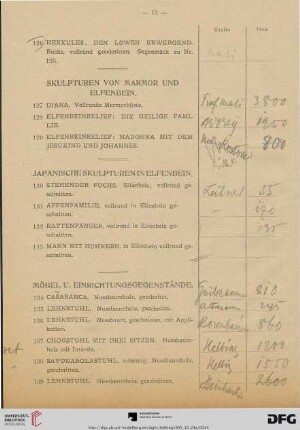 — 12 —
Käufer Preis
126 HERKULES, DEN LÖWEN ERWÜRGEND.
Buchs, vollrund geschnitten. Gegenstück zu Nr.
125.
SKULPTUREN VON MARMOR UND
ELFENBEIN.
127 DIANA. Vollrunde Marmorbüste. 3800
128 ELFENBEINRELIEF: DIE HEILIGE FAMI-
LIE. 1950
129 ELFENBEINRELIEF: MADONNA MIT DEM
JESUKIND UND JOHANNES. 800
JAPANISCHE SKULPTUREN IN ELFENBEIN.
130 STEHENDER FUCHS, Elfenbein, vollrund ge-
schnitten. 55
131 AFFENFAMILIE, vollrund in Elfenbein ge-
schnitten. 170
132 RATTENFÄNGER, vollrund in Elfenbein ge-
schnitten. 135
133 MANN MIT HÜHNERN, in Elfenbein vollrund ge-
schnitten.
MÖBEL U. EINRICHTUNGSGEGENSTÄNDE.
134 CASABANCA. Nussbaumholz, geschnitzt. 810
135 LEHNSTUHL. Nussbaumholz, geschnitzt. 245
136 LEHNSTUHL. Nussbaum, geschnitzt, mit Appli-
kation. Rosenbaum 860
137 CHORSTUHL MIT DREI SITZEN. Nussbaum-
holz mit Intarsia. Helbing 1200
138 SAVONAROLASTUHL, Nussbaumholz,
geschnitzt. Helbig 1550
139 LEHNSTUHL. Nussbaumholz, geschnitzt. 2600